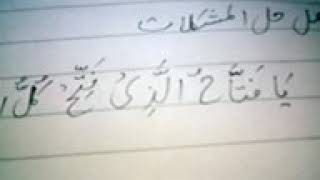 حل المشکلات
يَا فَتَّاحُ الَّذِىْ فَتِّحْ كُلُّ